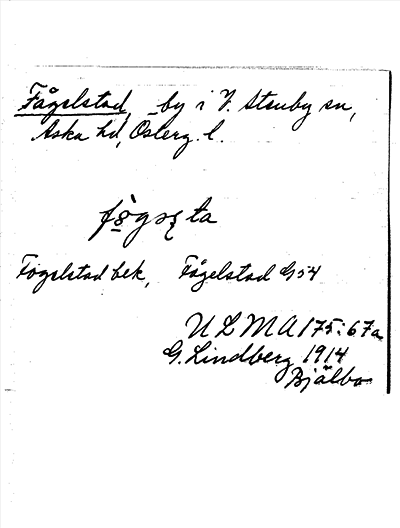 Fågelstad, by i V. Stenby sn,
Aska hd, Österg. l.
Fogelstad bek, Fågelstad G s 4
ULMA 175:67a
G. Lindberg 1914
Bjälbo